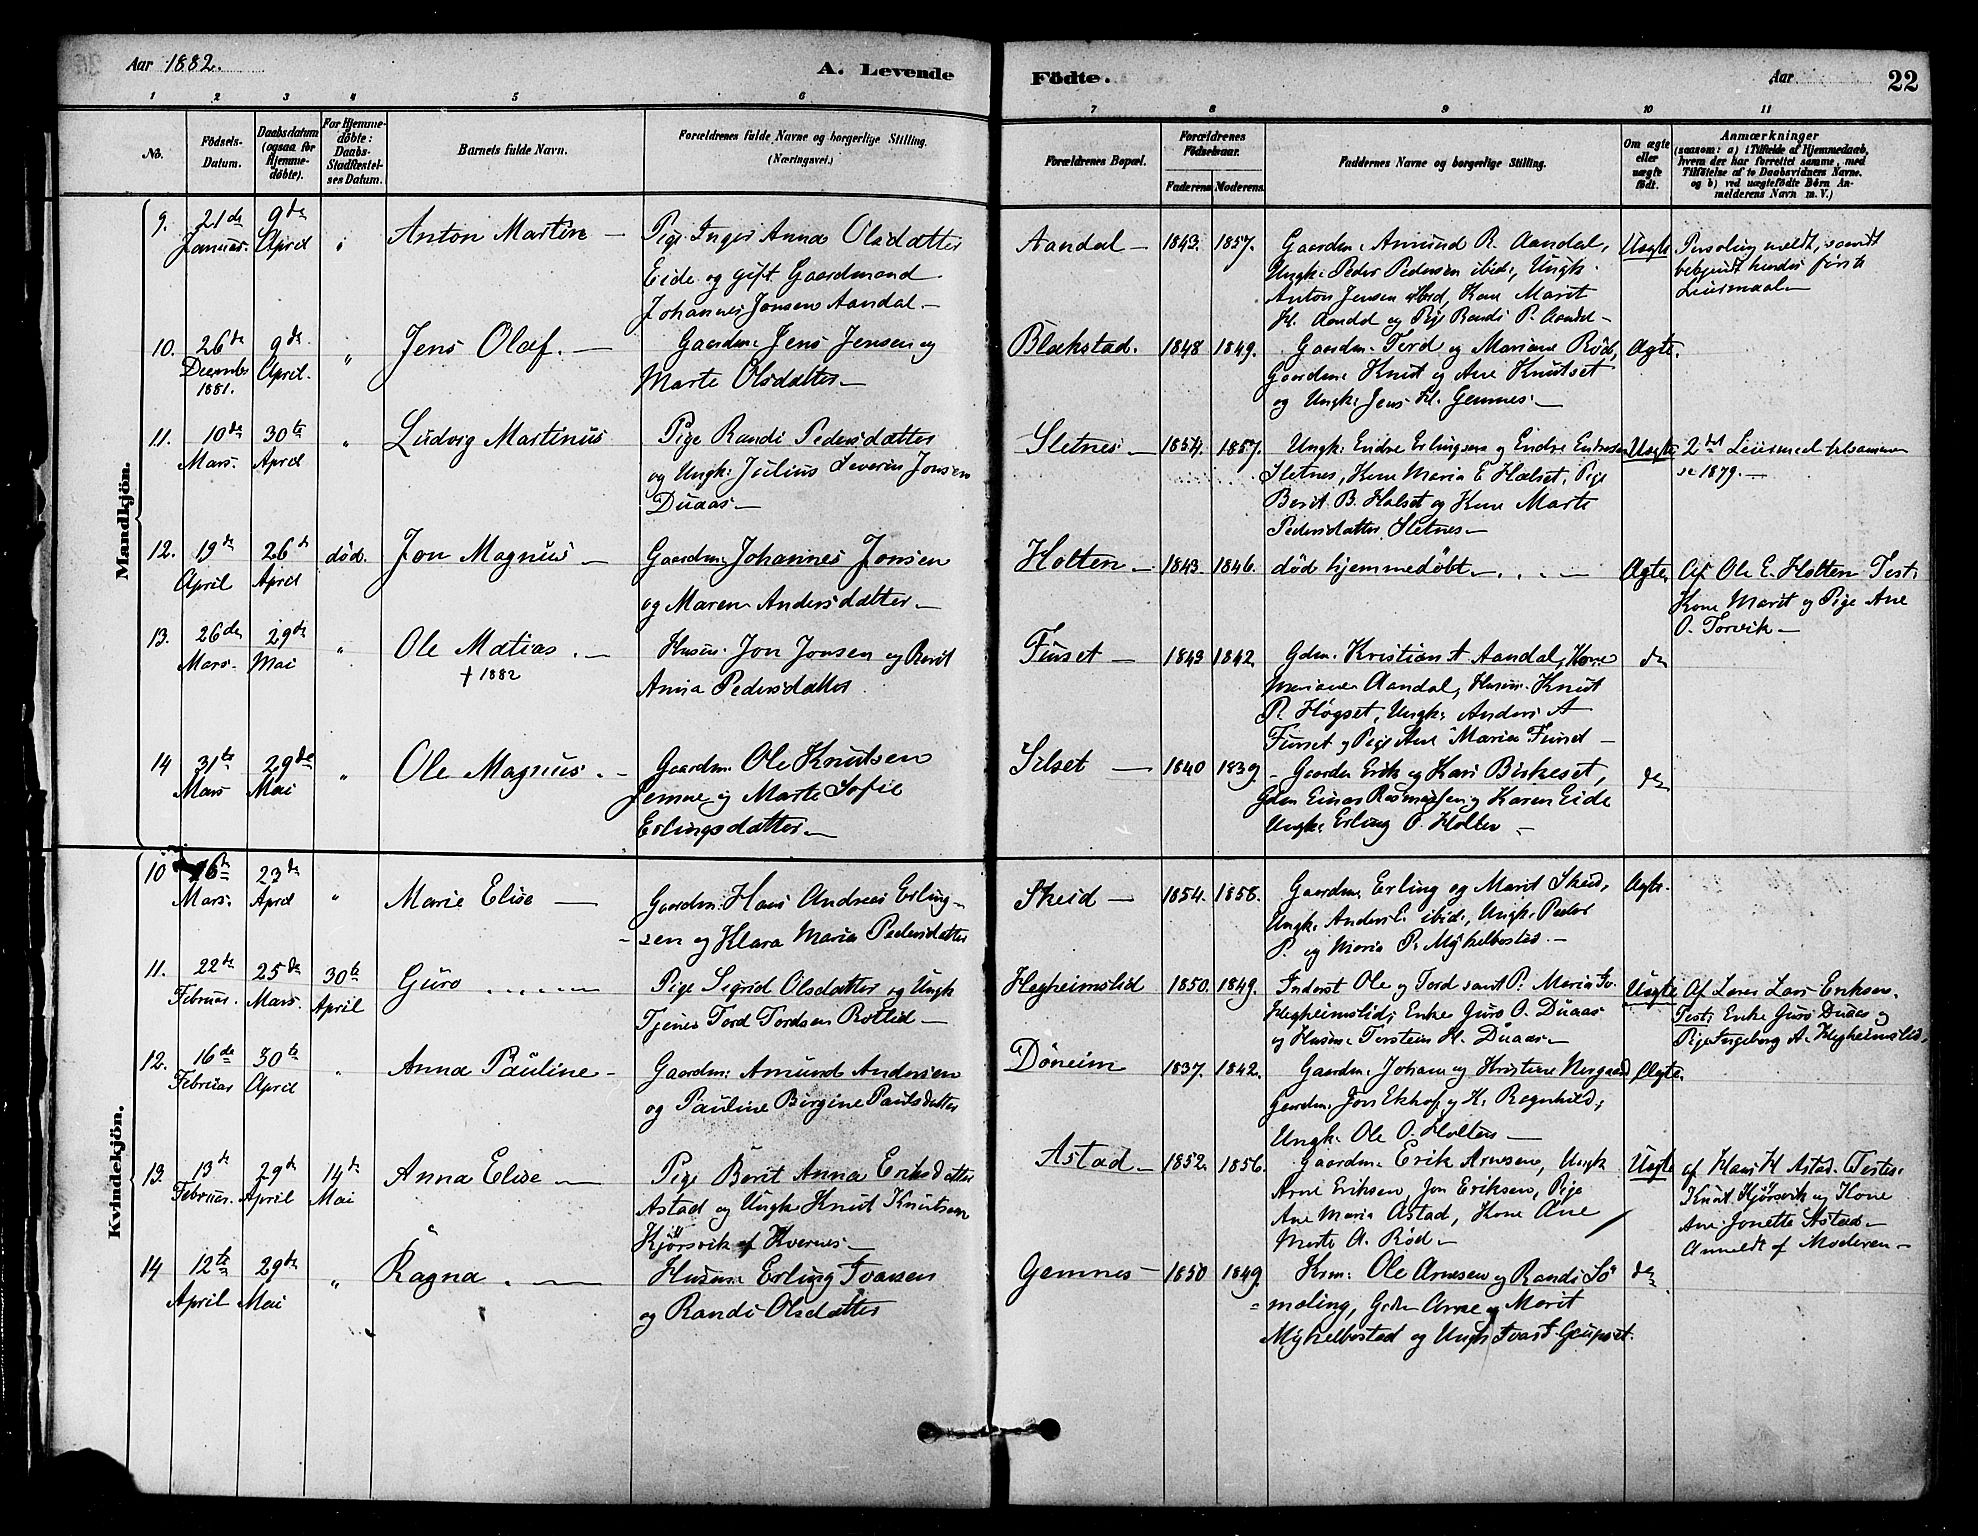 Aar 1882.
A. Levende
Födte.
Aar
22
1 2 3 4 5 6 7 8 9 10 11
No.
Födsels-Datum.
Daabsdatum (ogsaa for Hjemme-døbte).
For Hjemme-döbte: Daabs-Stadfæstelses Datum.
Barnets fulde Navn.
Forældrenes fulde Navne og borgerlige Stilling. (Næringsvei.)
Forældrenes Bopæl.
Forældrenes Födselsaar.
Faderens Moderens.
Faddernes Navne og borgerlige Stilling.
Om ægte eller uægte födt.
Anmærkninger
(saasom: a) i Tilfælde af Hjemmedaab, hvem der har forrettet samme, med Tilföielse af to Daabsvidners Navne. og b) ved uægtefödte Börn Anmelderens Navn m. V.)
Mandkjön.
9. 21de Januar. 9de April
Anton Martin
Pige Inger Anna Olsdatter
Eide og gift Gaardmand
Johannes Jonsen Aandal.
Aandal 1843. 1857.
Gaardm. Amund R. Aandal,
Ungk: Peder Pedersen ibid:, Ungk.
Anton Jensen, Kone Marit
Kl. Aandal og Pige Randi P. Aandal
Uægte
første
Leiermaal
10. 26de December 1881. 9de April. "
Jens Olaf.
Gaardm: Jens Jensen og
Marte Olsdatter
Blakstad. 1848 1849.
Gaardm: Tord og Mariane Röd,
Gaardm: Knut og Ane Knutset
og Ungk: Jens Kl. Gemnes.
Ægte.
11. 10de Mars. 30te April "
Ludvig Martinus
Pige Randi Pedersdatter
og Ungk: Julius Severin Jonsen
Duaas
Sletnes 1854. 1857.
Ungk: Endre Erlingsen og Endre Endresen
Sletnes, Kone Maria E. Halset, Pige
Berit B. Halset og Kone Marte
Pedersdatter Sletnes
Uægte
2det Leiermaal
se 1879.
12. 19de April 26de April død.
Jon Magnus
Gaardm: Johannes Jonsen
og Maren Andersdatter
Holten 1843 1846.
død hjemmedøbt
Ægte
Af Ole E. Holten Test:
Kone Marit og Pige Ane
O. Torvik
13. 26de Mars. 29de Mai "
Ole Matias.
+ 1882
Husm: Jon Jonsen og Berit
Anna Pedersdatter
Furset 1849 1842.
Gdm. Kristian A Aandal, Kone
Mariane Aandal, Husm. Knut
P. Høgset, Ungk: Anders A
Furset og Pige Ane Maria Furset
do
14 31te Mars 29de Mai "
Ole Magnus.
Gaardm: Ole Knutsen
Jemne og Marte Sofie
Erlingsdatter
Silset 1840 1839.
Gaardm Erik og Kari Birkeset,
Gdm Einar Rasmussen og Karen Eide
Ungk: Erling O. Holten
do
Kvindekjön.
10 16de Mars. 23de April "
Marie Elise
Gaardm: Hans Andreas Erling-
-sen og Klara Maria Pedersdatter
Skeid 1854. 1858.
Gaardm: Erling og Marit Skeid,
Ungk. Anders E. ibid:, Ungk: Peder
P. og Maria P. Myklebostad.
Ægte.
11. 22de Februar. 25de Mars. 30te April
Guro
Pige Sigrid Olsdatter og Ungk
Tjener Tord Tordsen Rotlid
Hegheimslid 1850. 1849.
Inderst Ole og Tord samt P: Maria
Hegheimslid, Enke Guro O. Duaas
og Husm. Torstein H. Duaas
Uægte
Af Lærer Lars Eriksen.
Test: Enke Guro Duaas og
Pige Ingeborg A. Hegheimslid.
12. 16de Februar 30te April "
Anna Pauline
Gaardm: Amund Andersen
og Pauline Birgine Paulsdatter
Döneim 1837. 1842.
Gaardm: Johan og Kristiane Nergaard
Gaardm: Jon Ekhof og K. Ragnhild,
Ungk. Ole O. Holten
Ægte.
13. 13de Februar. 29de April 14de Mai
Anna Elise
Pige Berit Anna Eriksdatter
Astad og Ungk: Knut Knutsen
Kjörsvik af Kvernes
Astad 1852. 1856.
Gaardm: Erik Arnesen, Ungk
Arne Eriksen, Jon Eriksen, Pige
Ane Maria Astad, Kone Ane
Marte A. Röd
Uægte
af Hans H. Astad. Testes:
Knut Kjörsvik og Kone
Ane Jonette Astad
Anmeldt af Moderen
14 12te April 29de Mai "
Ragna
Husm: Erling Ivarsen
og Randi Olsdatter
Gemnes 1850 1849.
Krm: Ole Arnesen og Randi Sö
=moling, Gdm Arne og Marit
Myklebostad og Ungk Ivar F. Gaupset.
do